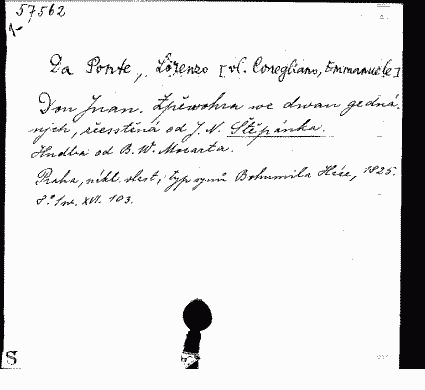 57562
Da Ponte, Lorenzo [vl. Conegliano, Emmanuele]
Don Juan. Zpěwohra we dwau gedná-
ních, zčesstěná od J. N. Štěpánka.
Hudba od B. W. Mozarta.
Praha, nákl. vlast., typ synů Bohumila Háze, 1825.
8° 1 sv. XVI. 103.
S